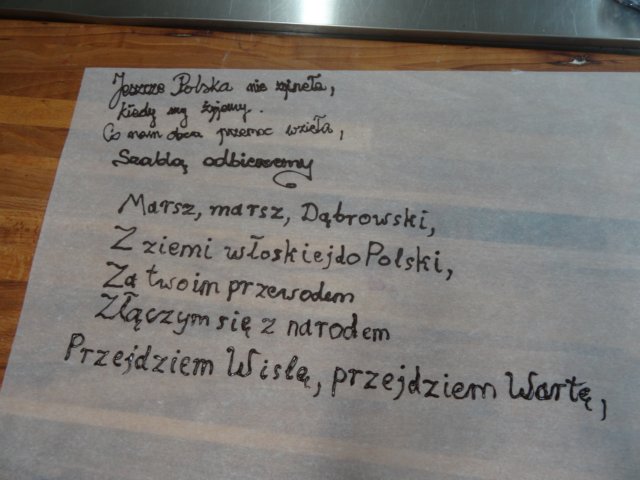 Jeszcze Polska nie zginęła,
kiedy my żyjemy.
Co nam obca przemoc wzięła,
Szablą odbierzemy
Marsz, marsz, Dąbrowski,
Z ziemi włoskiej do Polski,
Za twoim przewodem
Złączym się z narodem
Przejdziem Wisłę, przejdziem Wartę,